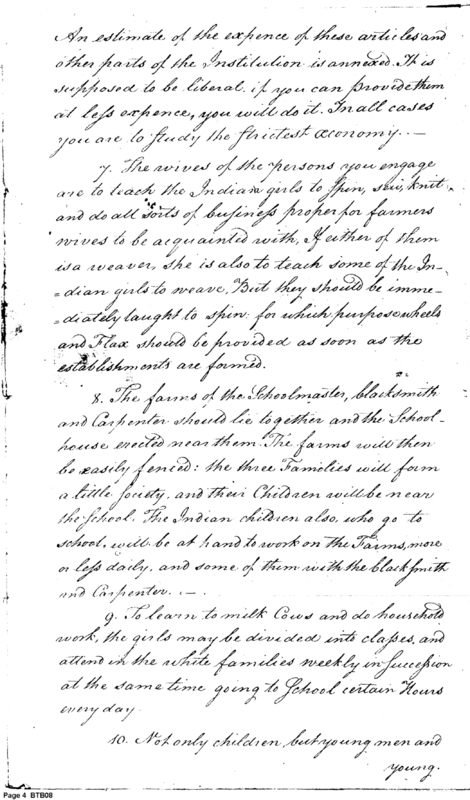 An estimate of the expence of these articles and
other parts of the Institution is annexed. It is
supposed to be liberal. if you can provide them
at less expence, you will do it. In all cases
you are to study the strictest œconomy. —
7. The wives of the persons you engage
are to teach the Indian girls to Spin, sew, knit
and do all sorts of business proper for farmers
wives to be acquainted with, If either of them
is a weaver, she is also to teach some of the In=
=dian girls to weave. But they should be imme=
=diately taught to spin: for which purpose wheels
and Flax should be provided as soon as the
establishments are formed.
8. The farms of the Schoolmaster, blacksmith
and Carpenter should lie together and the School-
house erected near them. The farms will then
be easily fenced: the three Families will form
a little society, and their Children will be near
the School. The Indian children also, who go to
school, will be at hand to work on the Farms, more
or less daily, and some of them with the blacksmith
and Carpenter. —
9. To learn to milk Cows and do household
work, the girls may be divided into classes, and
attend in the white families weekly in succession
at the same time going to School certain Hours
every day.
10. Not only children, but young men and
young.
Page 4 BTB08